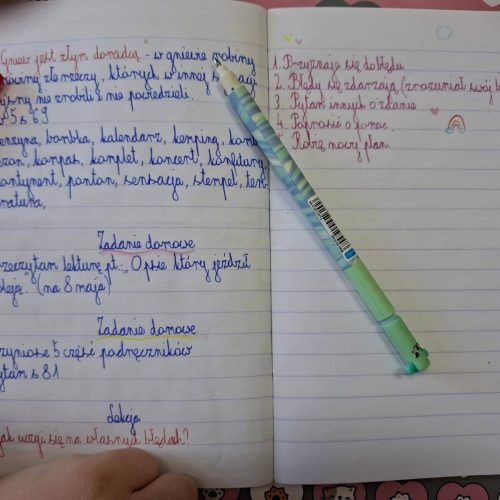 "Gniew jest złym doradcą" - w gniewie robimy
mówimy złe rzeczy, których w innej
nie zrobili i nie powiedzieli.
5 s 69
benzyna, bomba, kalendarz, kemping,
kompas, komplet, koncert, konfitury,
pontan, sensacja, stempel,
Zadanie domowe
Przeczytam lekturę pt.: „O psie który jeździł
koleją." (na 8 maja)
Zadanie domowe
Przyniosę 5 część podręczników
Czytam s 81
Lekcja
Jak uczyć się na własnych błędach?
1. Przyznaję się do błędu.
2. Błędy się zdarzają (zrozumiał swój
3. Pytam innych o zdanie
4. Poprosić o pomoc.
Robię nowy plan.